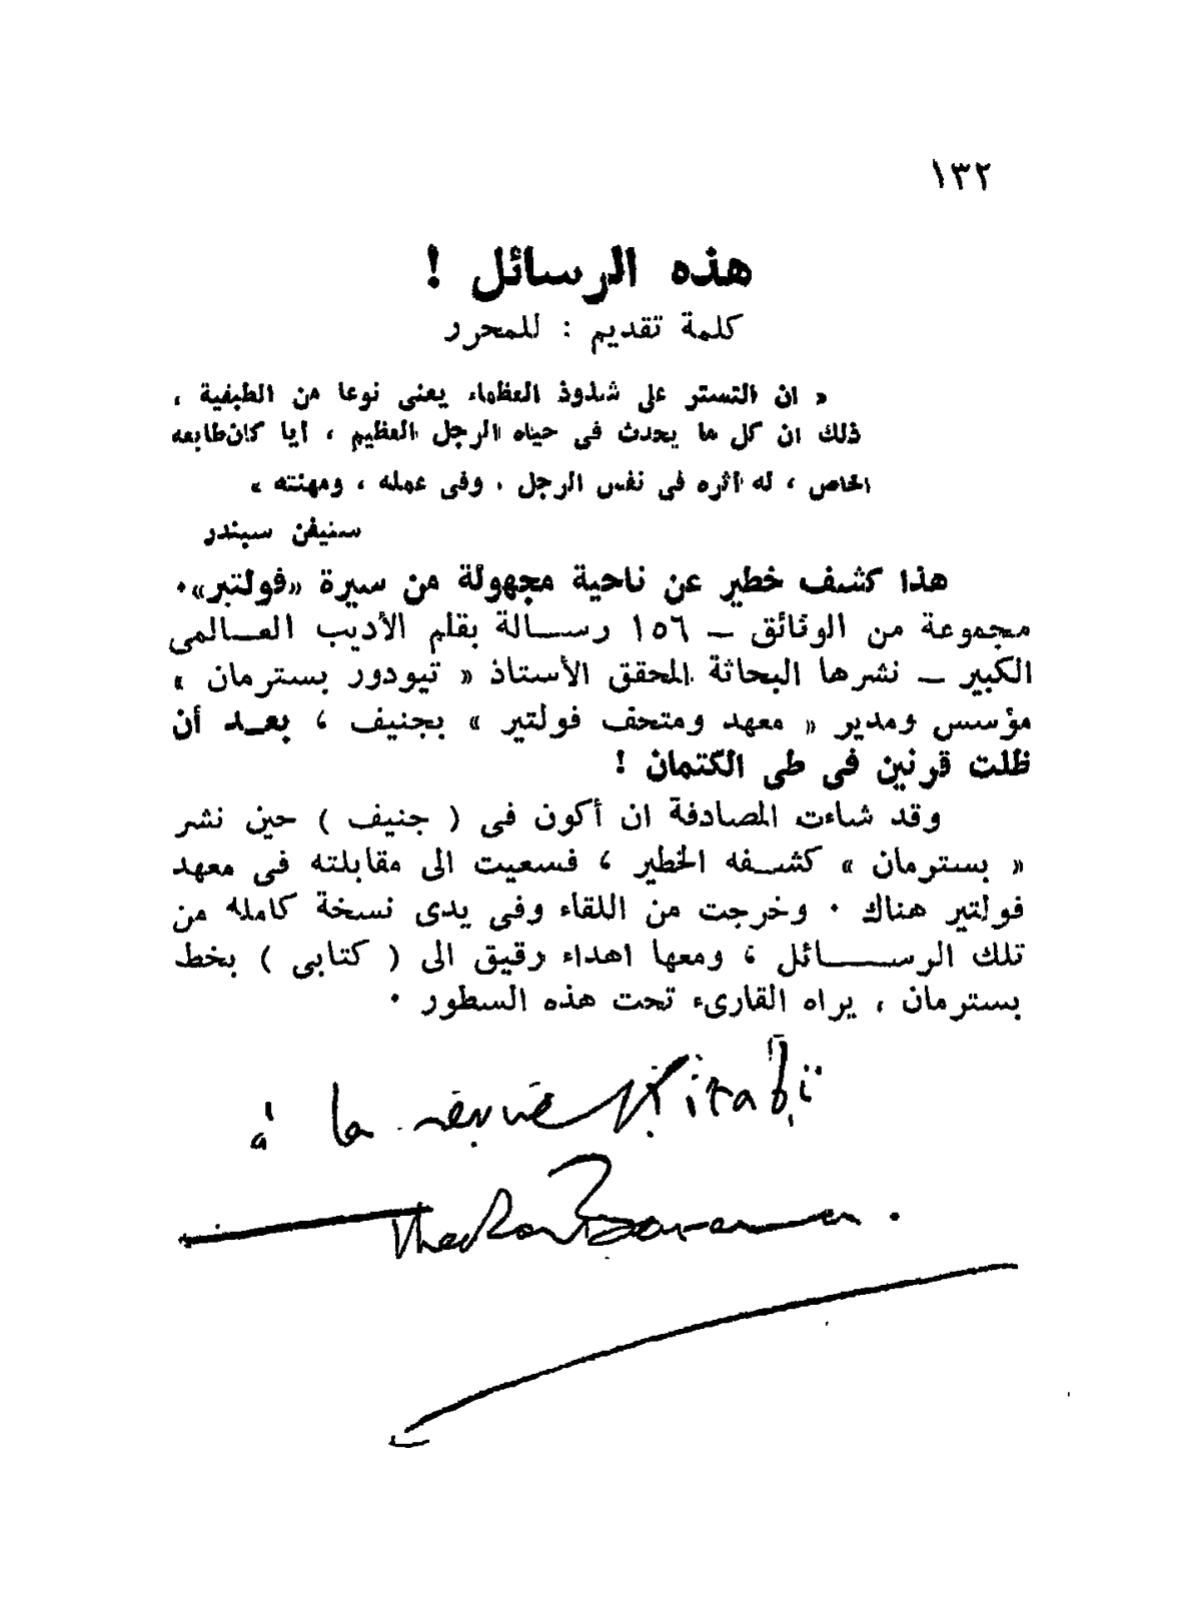 ١٣٢
هذه الرسائل !
كلمة تقديم : للمحرر
« ان التستر على شذوذ العظماء يعنى نوعا من الطبفية ،
ذلك ان كل ما يحدث فى حياه الرجل العظيم ، أيا كان طابعه
الخاص ، له أثره فى نفس الرجل . وفى عمله ، ومهنته »
ستيفن سبندر
هذا كشف خطير عن ناحية مجهولة من سيرة «فولتير».
مجموعة من الوثائق ــ ١٥٦ رسالة بقلم الأديب العالمى
الكبير ــ نشرها البحاثة المحقق الأستاذ « تيودور بسترمان »
مؤسس ومدير « معهد ومتحف فولتير » بجنيف ، بعد أن
ظلت قرنين فى طى الكتمان !
وقد شاءت المصادفة ان أكون فى ( جنيف ) حين نشر
« بسترمان » كشفه الخطير ، فسعيت الى مقابلته فى معهد
فولتير هناك . وخرجت من اللقاء وفى يدى نسخة كامله من
تلك الرسائل ، ومعها اهداء رقيق الى ( كتابى ) بخط
بسترمان ، يراه القارىء تحت هذه السطور .
à la revue Kitabi
Theodore Besterman.